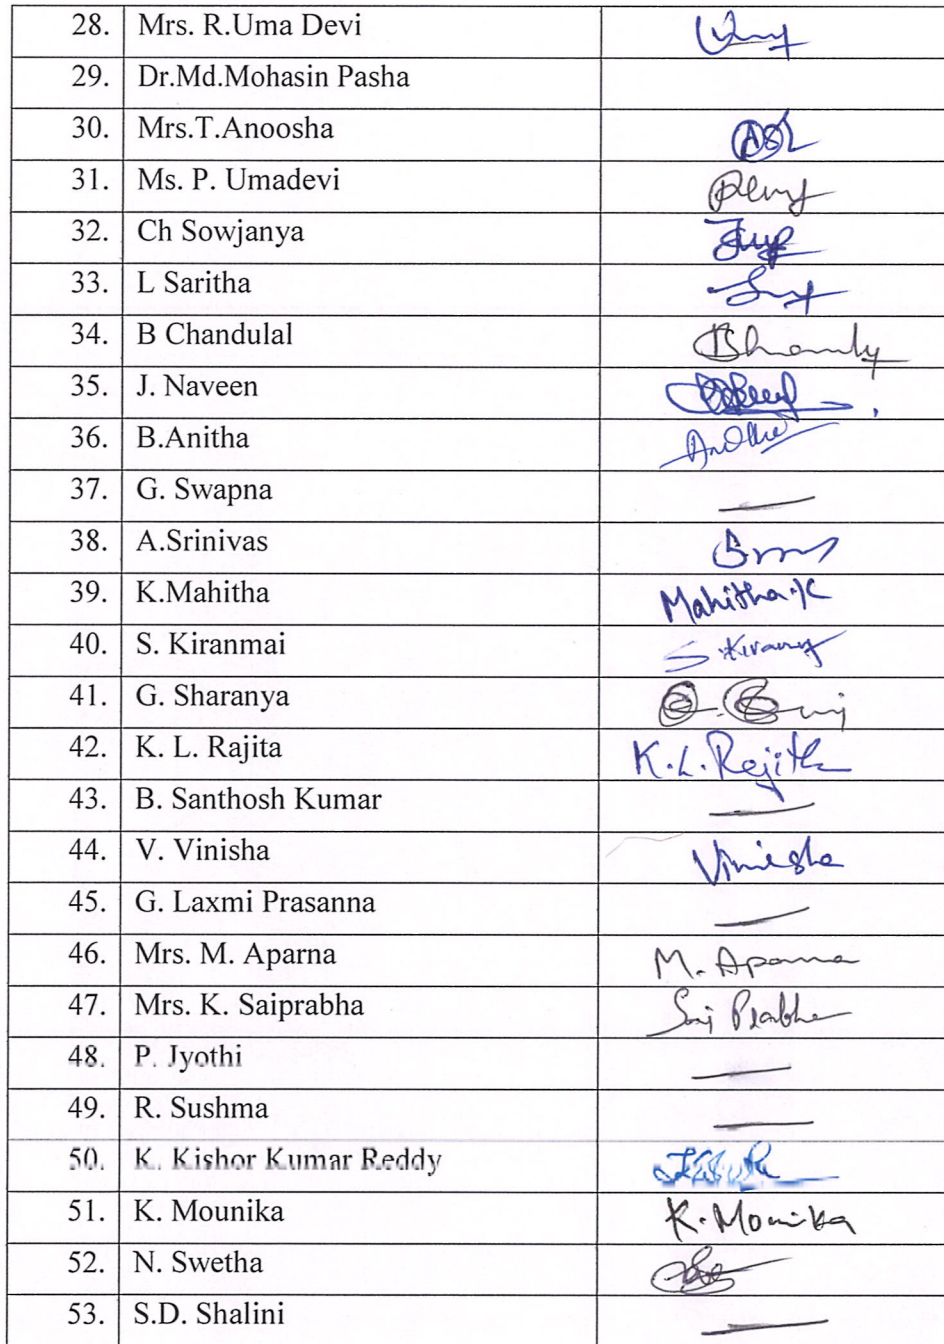 28. Mrs. R.Uma Devi
29. Dr.Md.Mohasin Pasha
30. Mrs.T.Anoosha
31. Ms. P. Umadevi
32. Ch Sowjanya
33. L Saritha
34. B Chandulal
35. J. Naveen
36. B.Anitha
37. G. Swapna
38. A.Srinivas
39. K.Mahitha Mahitha.K
40. S. Kiranmai
41. G. Sharanya
42. K. L. Rajita K.L.Rajitha
43. B. Santhosh Kumar
44. V. Vinisha Vinisha
45. G. Laxmi Prasanna
46. Mrs. M. Aparna M. Aparna
47. Mrs. K. Saiprabha Sai Prabha
48. P. Jyothi
49. R. Sushma
50. K. Kishor Kumar Reddy
51. K. Mounika K. Mounika
52. N. Swetha
53. S.D. Shalini